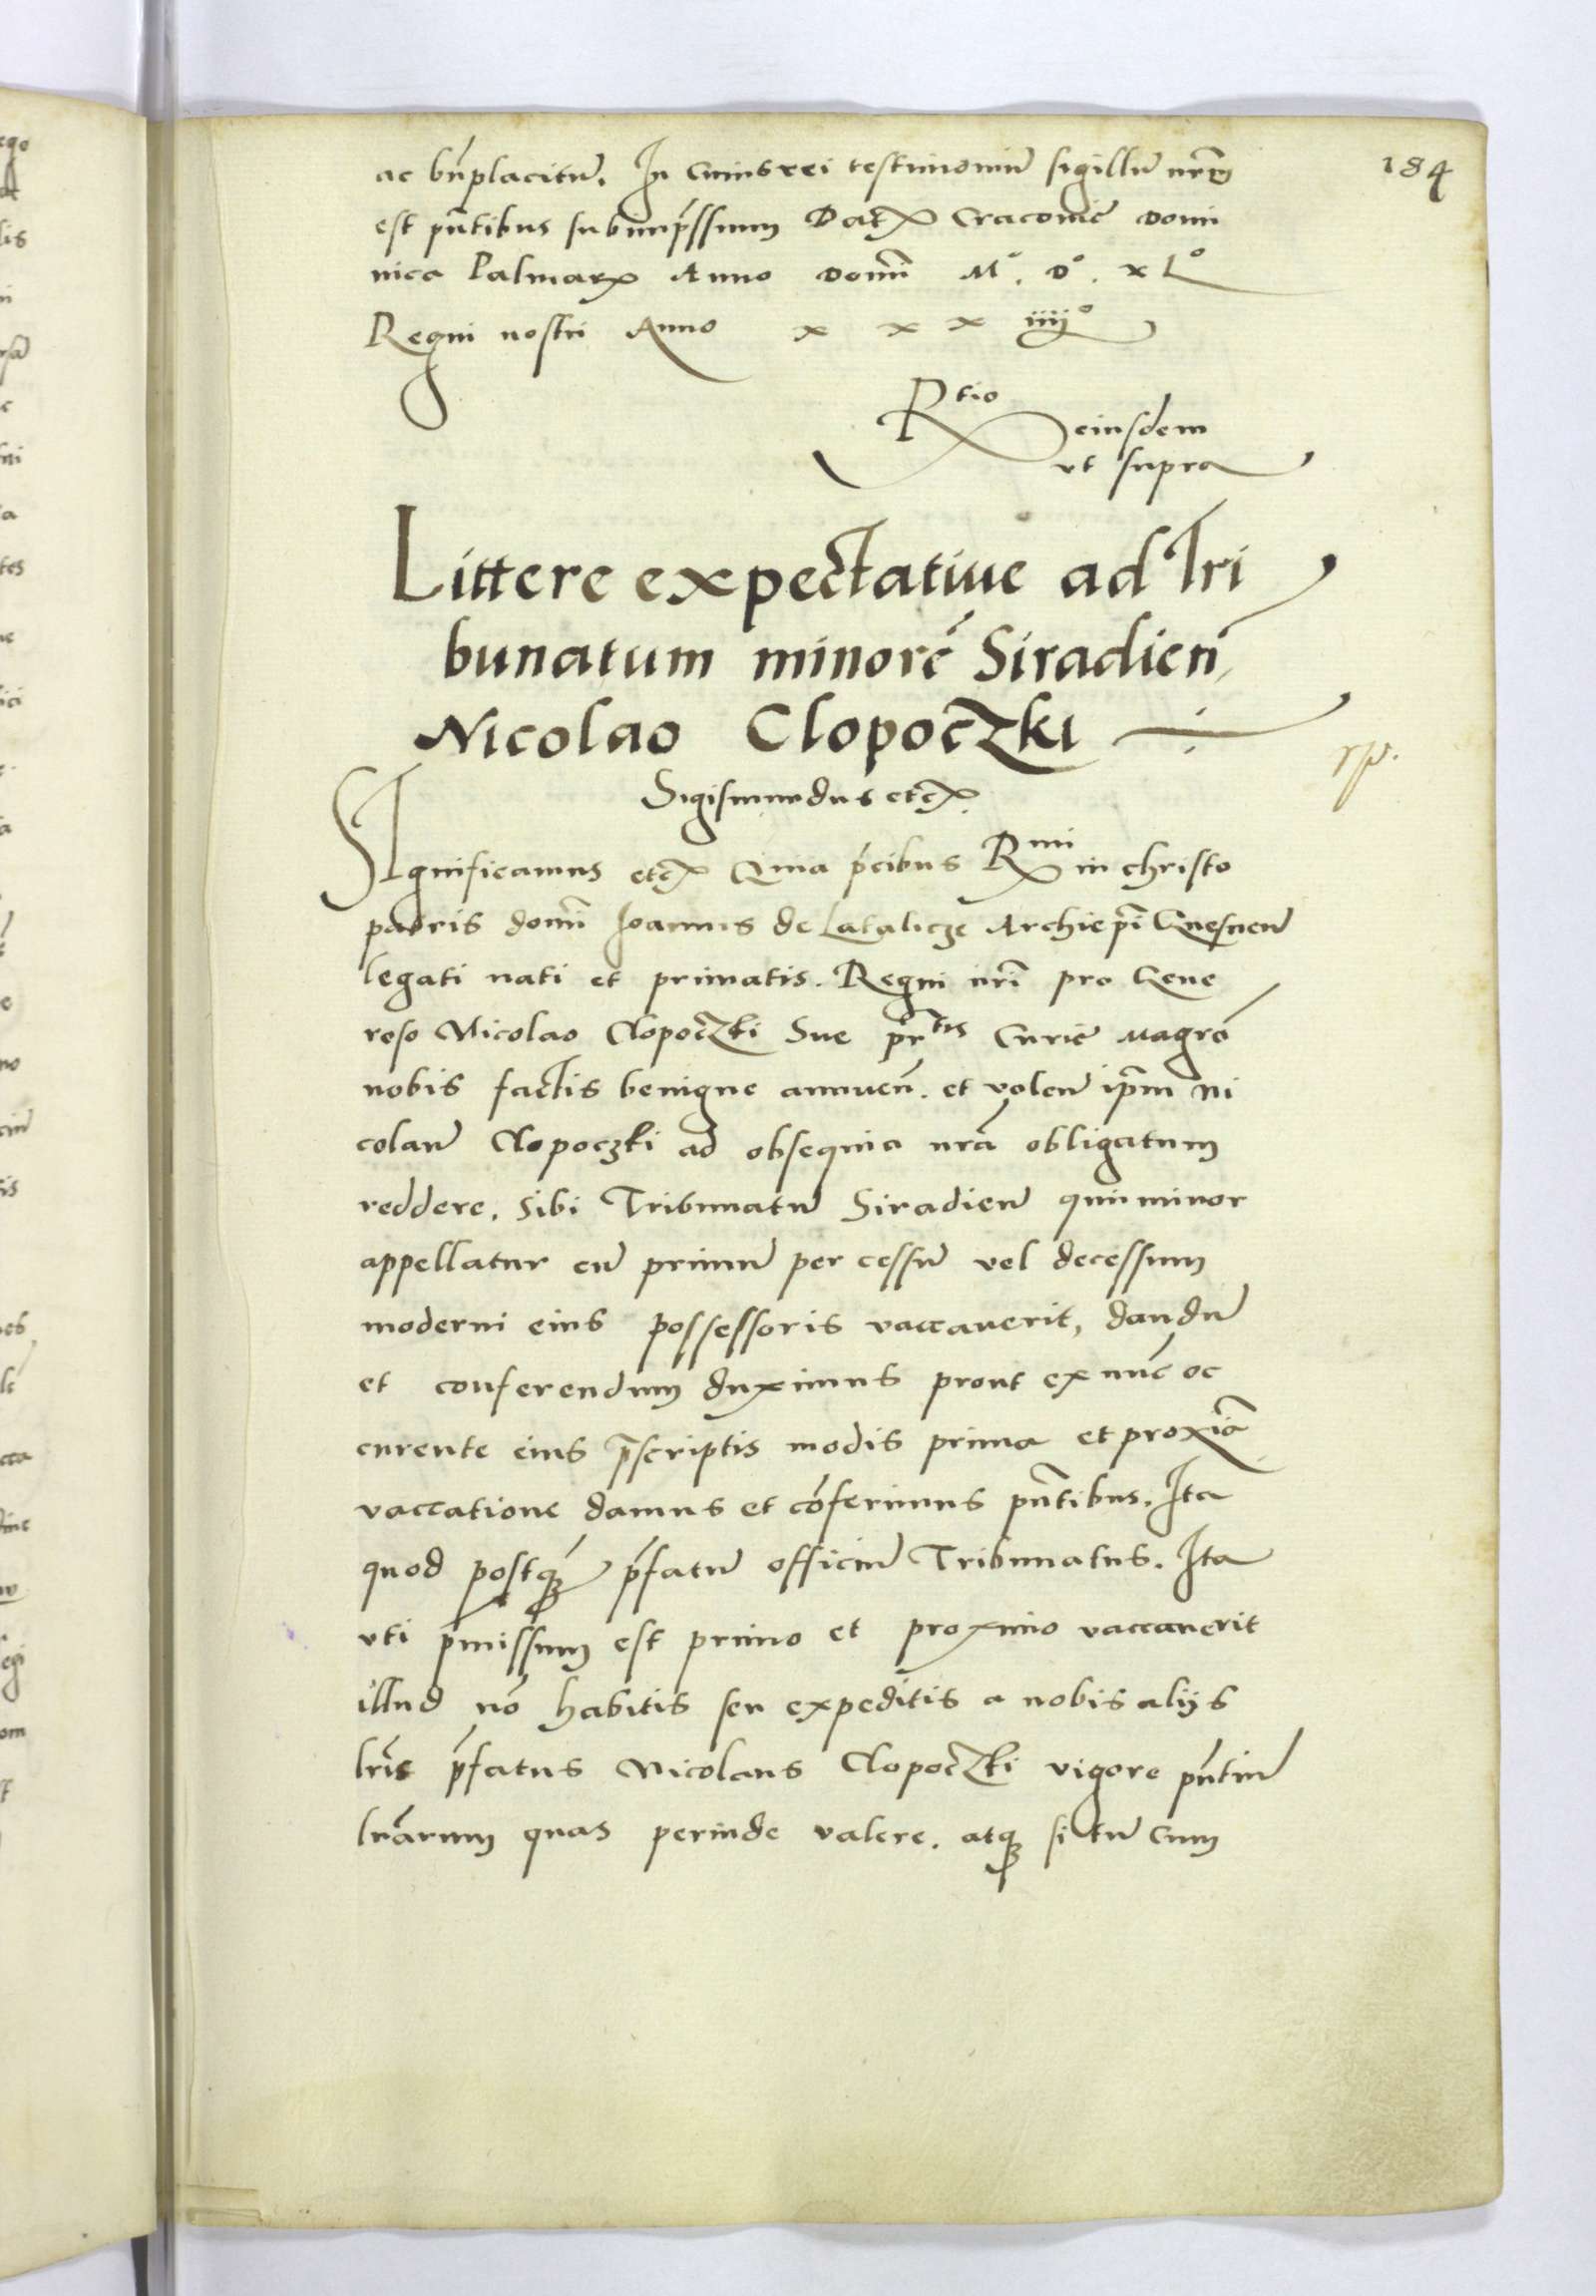 184
ac bn̄placitū. In Cuius rei testimoniū sigillū nr̄m
est pn̄tibus subimpr̄ssum Datꝝ Cracovie Domi
nica Palmarꝝ Anno Domī M°. D°. xL°
Regni nostri Anno x x x iiij°
Rtio eiusdem
vt supra
Littere expectatiue ad Tri
bunatum minorē Siradien̄
Nicolao Clopoczki
Sigismundus etcꝝ
SIgnificamus etcꝝ Quia p̄cibus Rmi in christo
patris domī Ioannis de Latalicze Archiep̄i Gnesnen̄
legati nati et primatis. Regni nr̄i pro Gene
roso Nicolao Clopoczki Sue pr̄tis Curie Magrō
nobis factis benigne annuen̄. et volen̄ ip̄m Ni
colaū Clopoczki ad obsequia nr̄a obligatum
reddere. Sibi Tribunatū Siradien̄ qui minor
appellatur cū primū per cessū vel decessum
moderni eius possessoris vaccauerit, dandū
et conferendum duximus prout ex nūc oc
curente eius p̄scriptis modis prima et proxīa
vaccatione damus et cōferimus pn̄tibus. Ita
quod postꝙ̄ p̄fatū officiū Tribunatus. Ita
vti p̄missum est primo et proximo vaccauerit
illud nō habitis seu expeditis a nobis alijs
lr̄is p̄fatus Nicolaus Clopoczki vigore pn̄tiū
lr̄arum quas perinde valere. atqꝫ si tū Cum